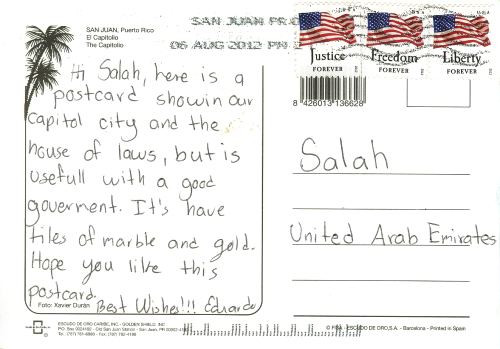 SAN JUAN, Puerto Rico
El Capitolio
The Capitolio
SAN JUAN
06 AUG 2012 PM
Hi Salah, here is a
postcard showin our
capitol city and the
house of laws, but is
usefull with a good
goverment. It's have
tiles of marble and gold.
Hope you like this
postcard.
Best Wishes!!! Eduardo
Foto: Xavier Durán
ESCUDO DE ORO CARIBE, INC. - GOLDEN SHIELD, INC.
USA
Justice
FOREVER
Freedom
FOREVER
Liberty
FOREVER
8 426013 136628
Salah
United Arab Emirates
© FISA - ESCUDO DE ORO, S.A. - Barcelona - Printed in Spain